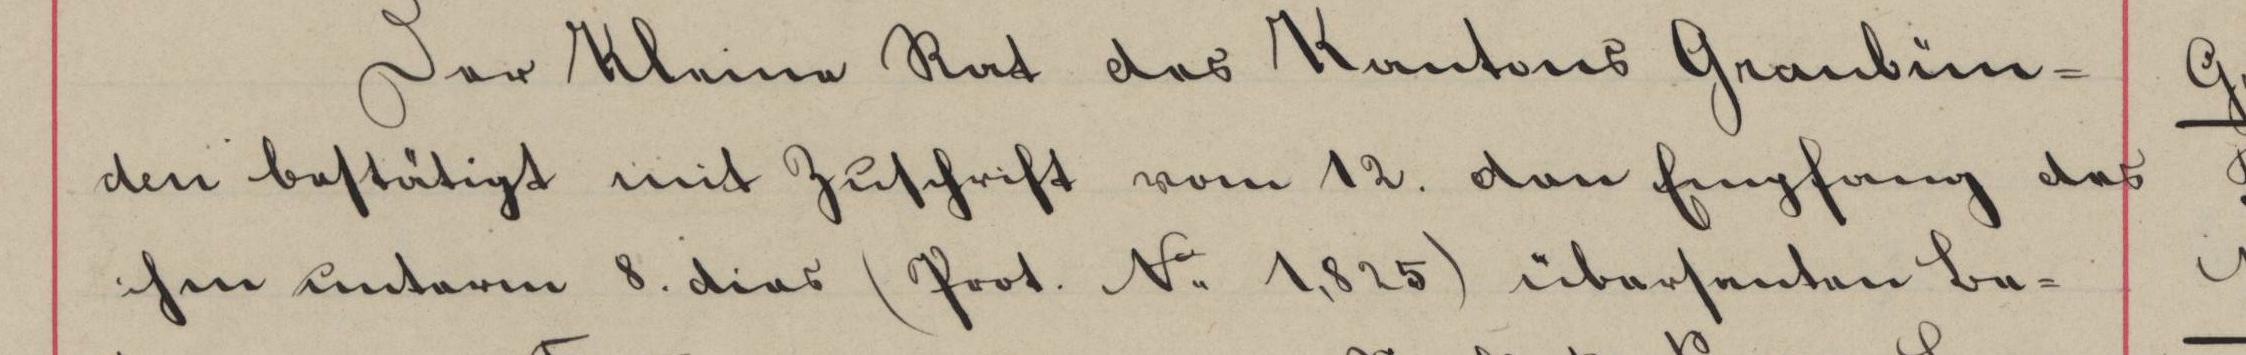 Der Kleine Rat des Kantons Graubün=
den bestätigt mit Zuschrift vom 12. den Empfang des
ihm unterm 8. dies (Prot. No. 1,825) übersenten Be=